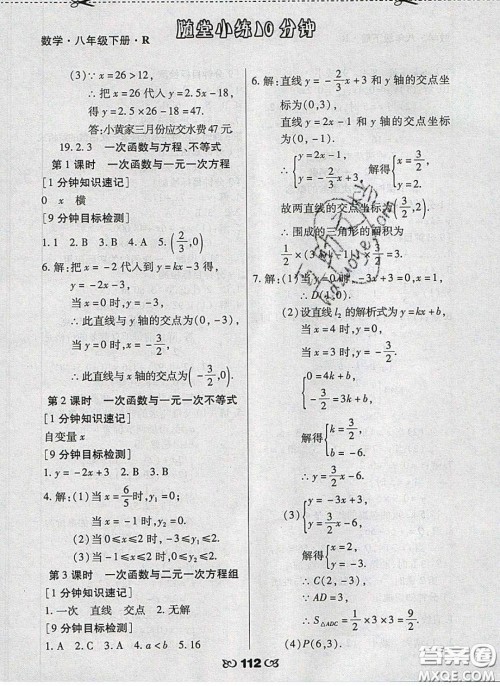 数学·八年级下册·R
随堂小练10分钟
(3)∵x=26>12,
∴把 x=26 代人 y=2.5x-18,
得 y=2.5×26-18=47.
答:小黄家三月份应交水费 47 元.
19.2.3 一次函数与方程、不等式
第1课时 一次函数与一元一次方程
[1分钟知识速记]
0 x 横
[9分钟目标检测]
1.1 2.2 3.A 4.B 5.(2/3,0)
6.解:把 x=-2 代人到 y=kx-3 得
当 x=0 时,y=-3,
∴此直线与 y 轴的交点为(0,-3),
当 y=0 时,x=-3/2,
∴此直线与 x 轴的交点为(-3/2,0).
第2课时 一次函数与一元一次不等式
[1分钟知识速记]
自变量 x
[9分钟目标检测]
1.y=-2x+3 2.B 3.B
4.解:(1)当 x=6/5时,y₁=0;
当 x=-1 时,y₁=0;
(2)当 0≤x≤2 时,-3≤y≤5;
(3)当-1≤x≤2 时,-6≤y≤6.
第3课时 一次函数与二元一次方程组
[1分钟知识速记]
1.一次 直线 交点 2.无解
[9分钟目标检测]
1.A 2.A 3.B 4.A 5.16
6.解:直线 y=-2/3x+3 和 y 轴的交点坐
标为(0,3),
直线 y=2x-1 和 y 轴的交点坐标为
(0,-1).
∴{y=2x-1, y=-2/3x+3. 解得{x=3/2, y=2.
故两直线的交点坐标为(3/2,2).
∴围成的三角形的面积为
1/2×(3+1)×3/2=3.
7.解:(1)当 y=0 时,-3x+3=0,x=1,
∴D(1,0).
(2)设直线 l₂ 的解析式为 y=kx+b,
当 x=4 时,y=0,
当 x=3 时,y=-3/2,
∴{0=4k+b, -3/2=3k+b,
解得{k=3/2, b=-6.
∴y=3/2x-6.
(3){y=-3x+3, y=3/2x-6,
解得{x=2, y=-3.
∴C(2,-3),
∵AD=3,
∴S△ADC=1/2×3×3=9/2.
(4)P(6,3).
112
答案圈
MXQE.COM